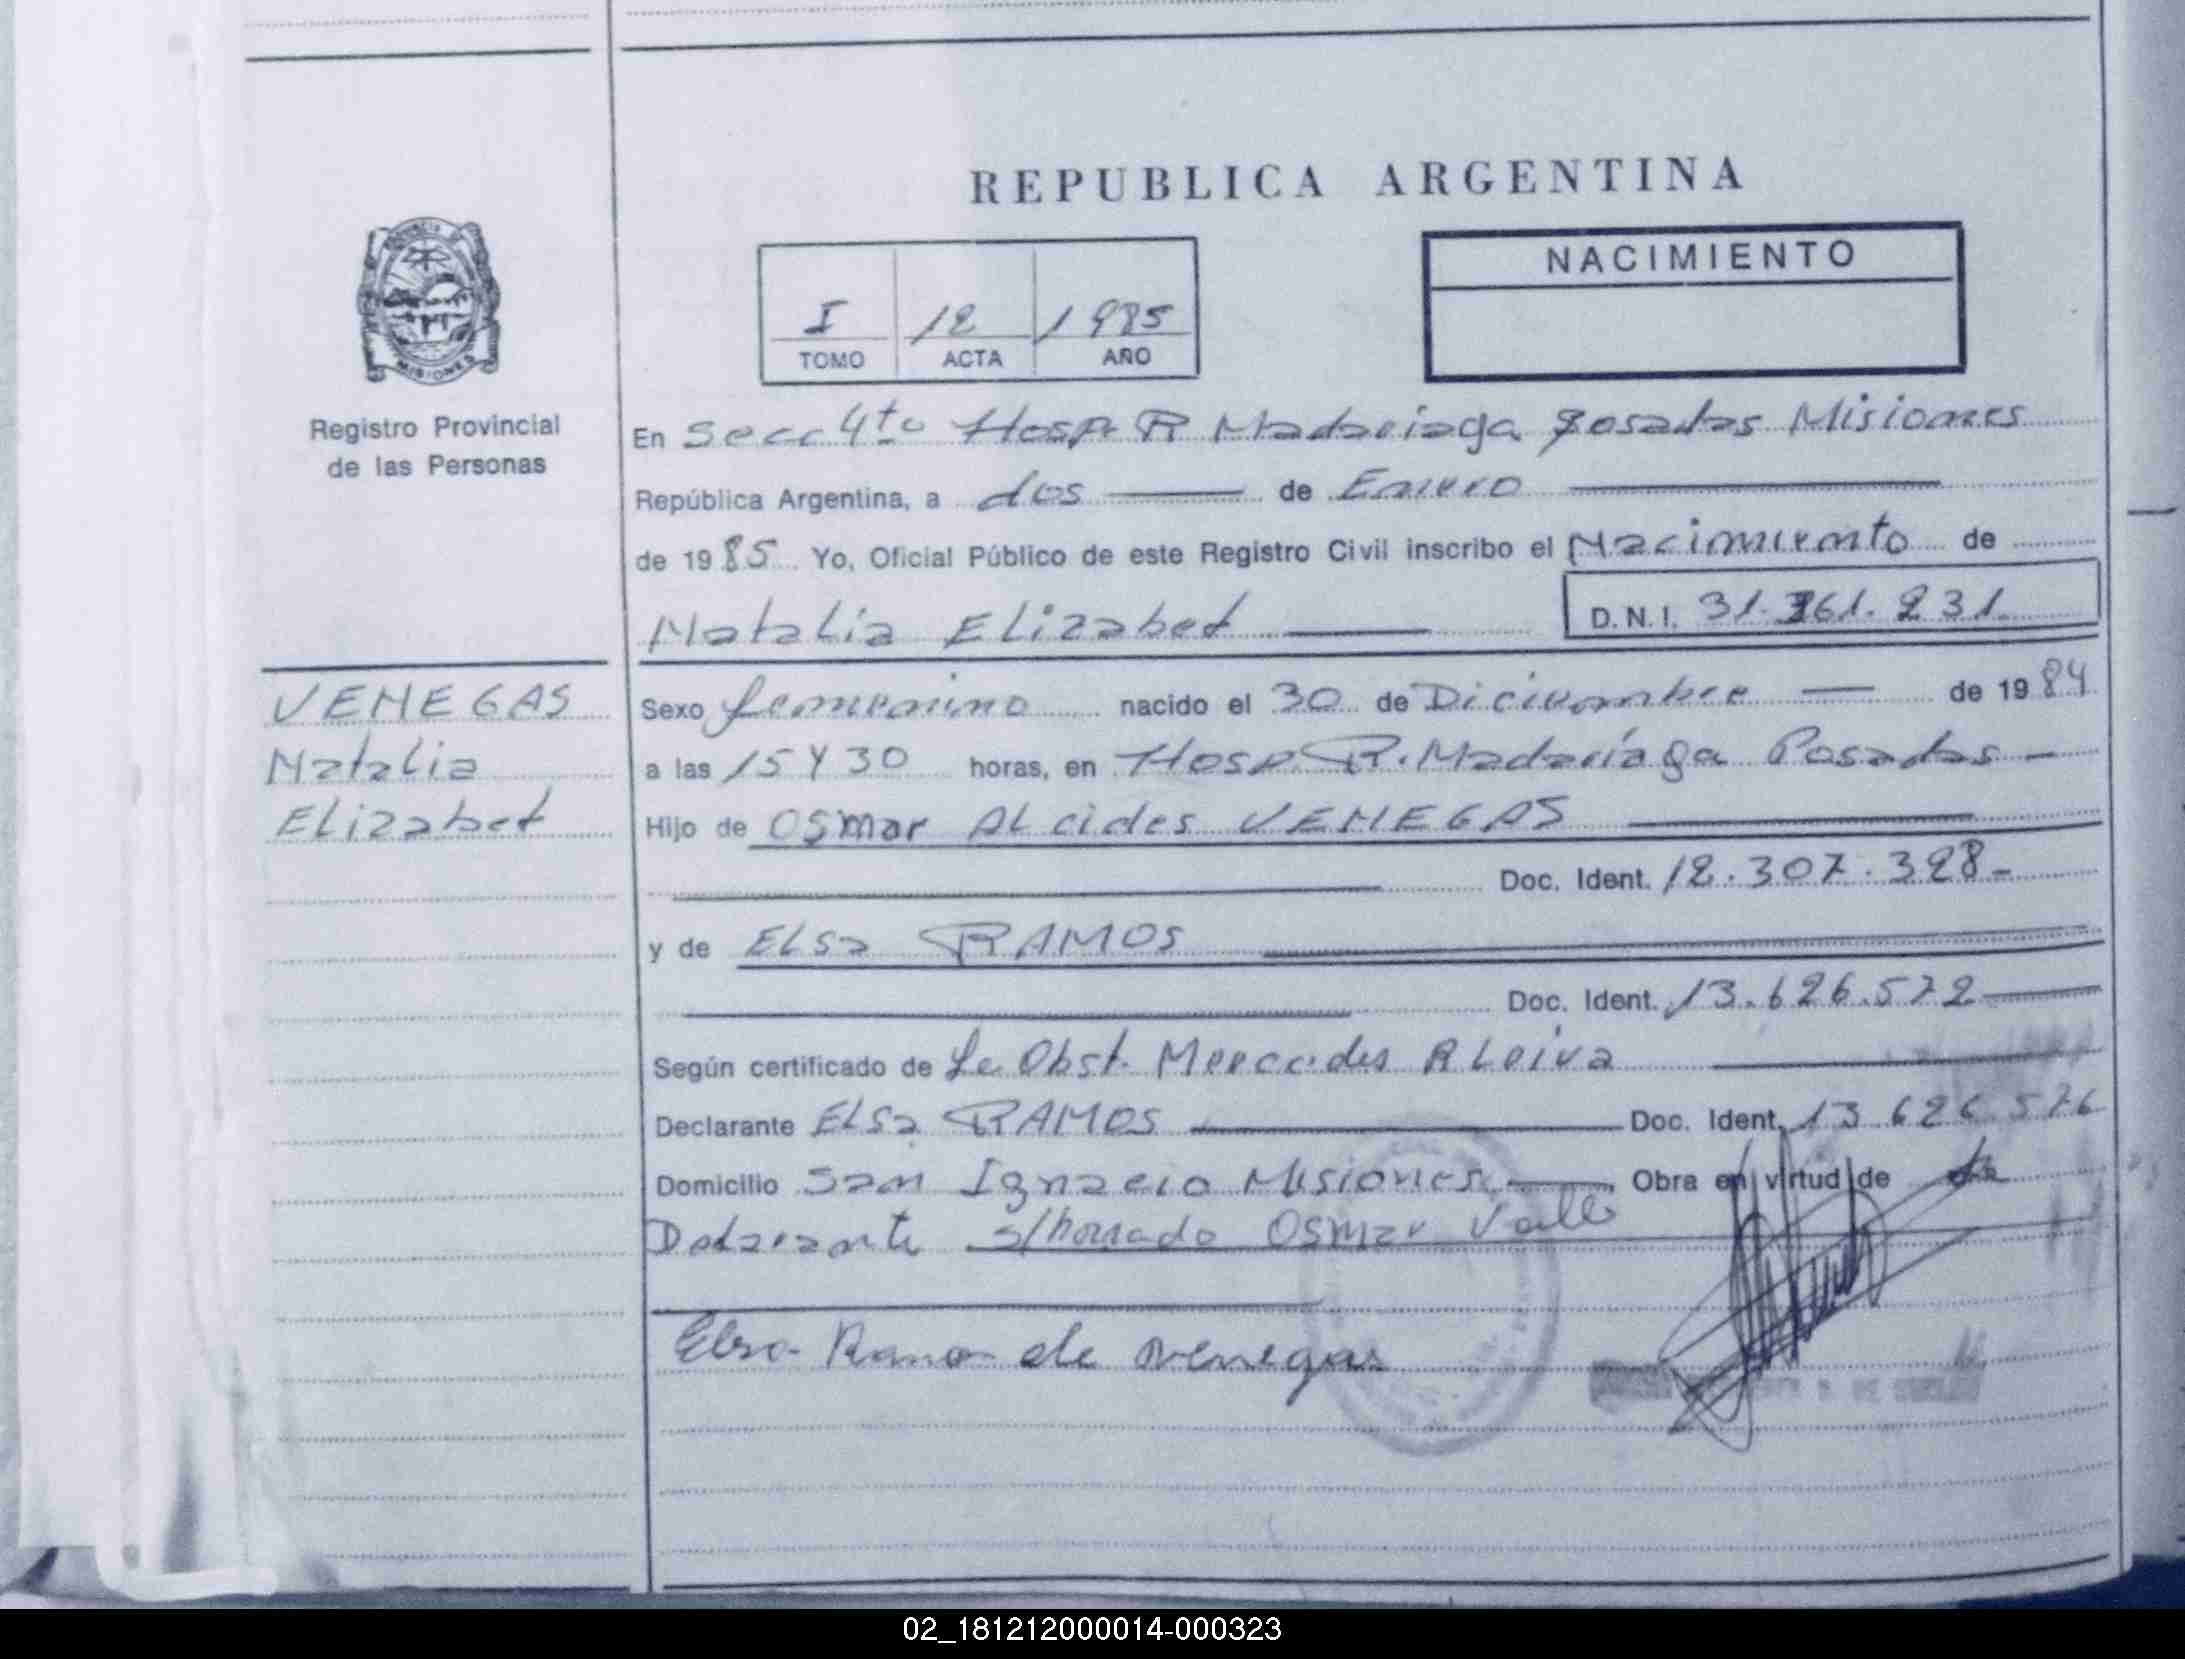 REPUBLICA ARGENTINA
NACIMIENTO
I 12 1985
TOMO ACTA AÑO
MISIONES
Registro Provincial
de las Personas
En Secc 4to Hosp R Madariaga Posadas Misiones
República Argentina, a dos de Enero
de 1985 Yo, Oficial Público de este Registro Civil inscribo el Nacimiento de
Natalia Elizabet D.N.I. 31.361.231
VENEGAS
Natalia
Elizabet
Sexo femenino nacido el 30 de Diciembre de 1984
a las 15 Y 30 horas, en Hosp. R. Madariaga Posadas -
Hijo de Osmar ALcides VENEGAS
Doc. Ident. 12.307.328-
y de ELSa RAMOS
Doc. Ident. 13.626.572
Según certificado de La Obst. Mercedes R Leiva
Declarante ELSa RAMOS Doc. Ident. 13.626.576
Domicilio San Ignacio Misiones Obra en virtud de
s/borrado Osmar Vale
Elsa Ramos de Venegas
02_181212000014-000323